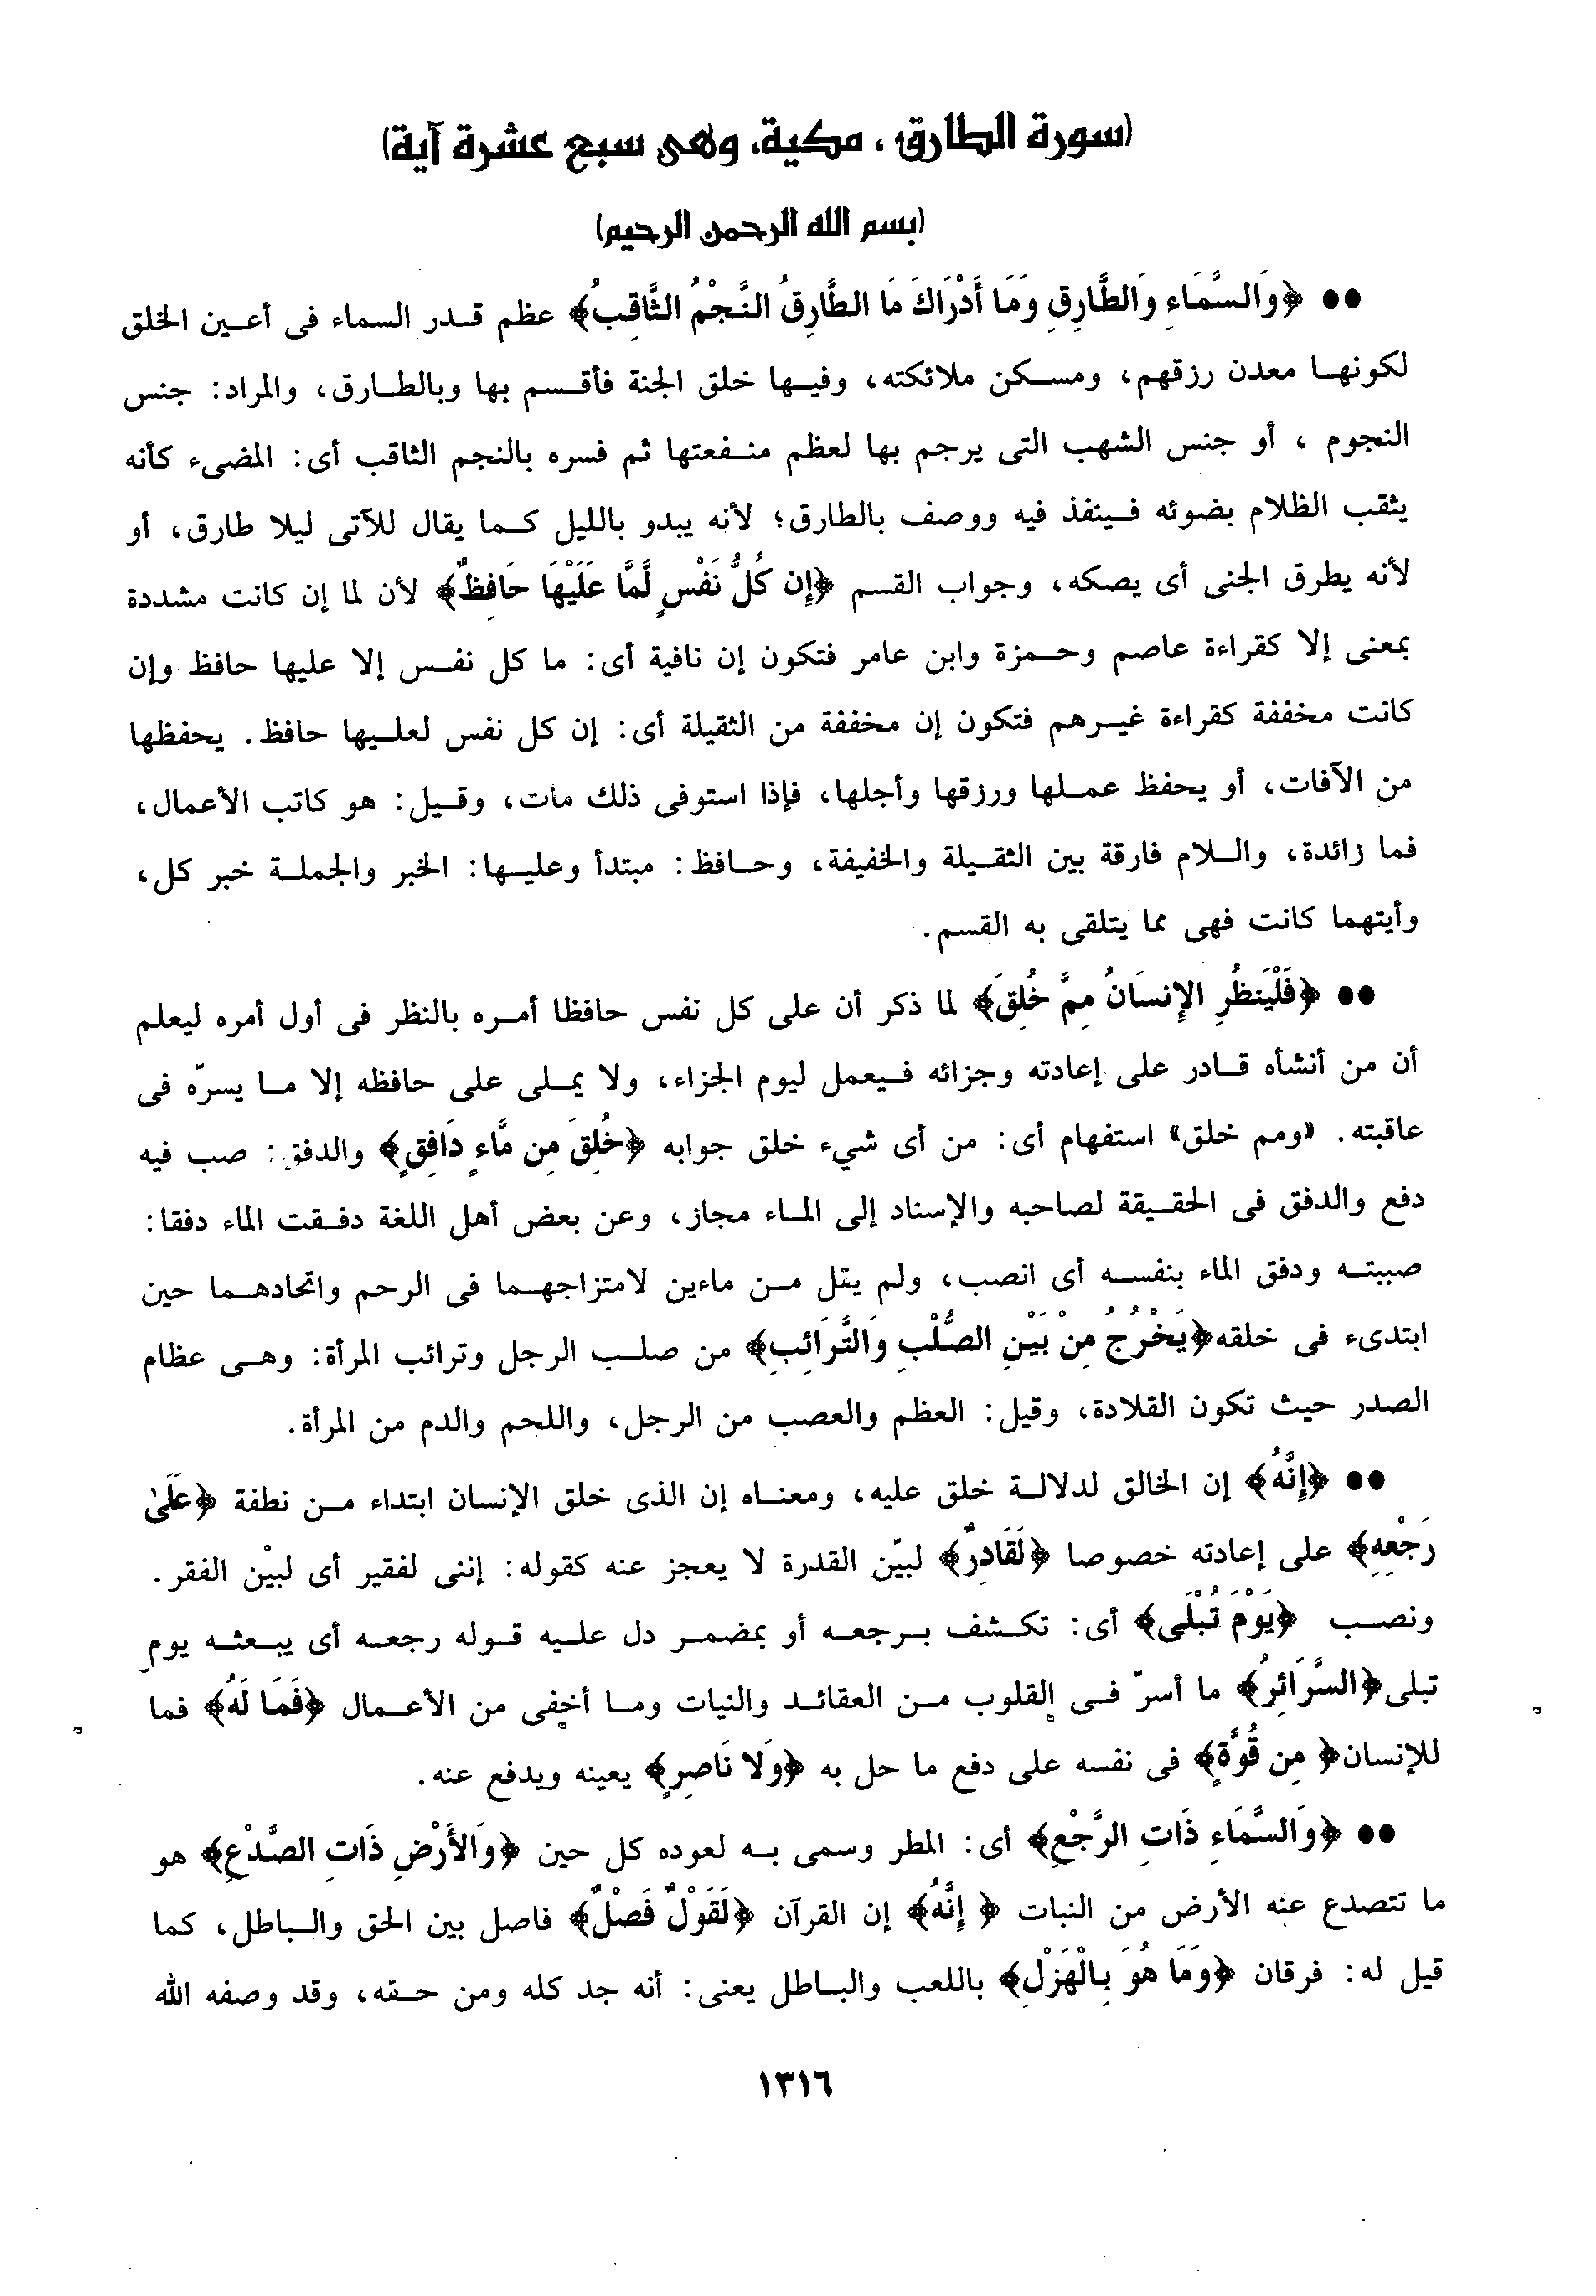 (سورة الطارق ، مكية، وهى سبع عشرة آية)
(بسم الله الرحمن الرحيم)
●● ﴿وَالسَّمَاءِ وَالطَّارِقِ وَمَا أَدْرَاكَ مَا الطَّارِقُ النَّجْمُ الثَّاقِبُ﴾ عظم قدر السماء فى أعين الخلق
لكونها معدن رزقهم، ومسكن ملائكته، وفيها خلق الجنة فأقسم بها وبالطارق، والمراد: جنس
النجوم ، أو جنس الشهب التى يرجم بها لعظم منفعتها ثم فسره بالنجم الثاقب أى: المضىء كأنه
يثقب الظلام بضوئه فينفذ فيه ووصف بالطارق؛ لأنه يبدو بالليل كما يقال للآتى ليلا طارق، أو
لأنه يطرق الجنى أى يصكه، وجواب القسم ﴿إِن كُلُّ نَفْسٍ لَّمَّا عَلَيْهَا حَافِظٌ﴾ لأن لما إن كانت مشددة
بمعنى إلا كقراءة عاصم وحمزة وابن عامر فتكون إن نافية أى: ما كل نفس إلا عليها حافظ وإن
كانت مخففة كقراءة غيرهم فتكون إن مخففة من الثقيلة أى: إن كل نفس لعليها حافظ. يحفظها
من الآفات، أو يحفظ عملها ورزقها وأجلها، فإذا استوفى ذلك مات، وقيل: هو كاتب الأعمال،
فما زائدة، واللام فارقة بين الثقيلة والخفيفة، وحافظ: مبتدأ وعليها: الخبر والجملة خبر كل،
وأيتهما كانت فهى مما يتلقى به القسم.
●● ﴿فَلْيَنظُرِ الإِنسَانُ مِمَّ خُلِقَ﴾ لما ذكر أن على كل نفس حافظا أمره بالنظر فى أول أمره ليعلم
أن من أنشأه قادر على إعادته وجزائه فيعمل ليوم الجزاء، ولا يملى على حافظه إلا ما يسرّه فى
عاقبته. «ومم خلق» استفهام أى: من أى شيء خلق جوابه ﴿خُلِقَ مِن مَّاءٍ دَافِقٍ﴾ والدفق: صب فيه
دفع والدفق فى الحقيقة لصاحبه والإسناد إلى الماء مجاز، وعن بعض أهل اللغة دفقت الماء دفقا:
صببته ودفق الماء بنفسه أى انصب، ولم يقل من ماءين لامتزاجهما فى الرحم واتحادهما حين
ابتدىء فى خلقه﴿يَخْرُجُ مِنْ بَيْنِ الصُّلْبِ وَالتَّرَائِبِ﴾ من صلب الرجل وترائب المرأة: وهى عظام
الصدر حيث تكون القلادة، وقيل: العظم والعصب من الرجل، واللحم والدم من المرأة.
●● ﴿إِنَّهُ﴾ إن الخالق لدلالة خلق عليه، ومعناه إن الذى خلق الإنسان ابتداء من نطفة ﴿عَلَىٰ
رَجْعِهِ﴾ على إعادته خصوصا ﴿لَقَادِرٌ﴾ لبيّن القدرة لا يعجز عنه كقوله: إننى لفقير أى لبيْن الفقر.
ونصب ﴿يَوْمَ تُبْلَى﴾ أى: تكشف برجعه أو بمضمر دل عليه قوله رجعه أى يبعثه يوم
تبلى﴿السَّرَائِرُ﴾ ما أسرّ فى القلوب من العقائد والنيات وما أخفى من الأعمال ﴿فَمَا لَهُ﴾ فما
للإنسان﴿ مِن قُوَّةٍ﴾ فى نفسه على دفع ما حل به ﴿وَلا نَاصِرٍ﴾ يعينه ويدفع عنه.
●● ﴿وَالسَّمَاءِ ذَاتِ الرَّجْعِ﴾ أى: المطر وسمى به لعوده كل حين ﴿وَالأَرْضِ ذَاتِ الصَّدْعِ﴾ هو
ما تتصدع عنه الأرض من النبات ﴿ إِنَّهُ﴾ إن القرآن ﴿لَقَوْلٌ فَصْلٌ﴾ فاصل بين الحق والباطل، كما
قيل له: فرقان ﴿وَمَا هُوَ بِالْهَزْلِ﴾ باللعب والباطل يعنى: أنه جد كله ومن حقه، وقد وصفه الله
١٣١٦